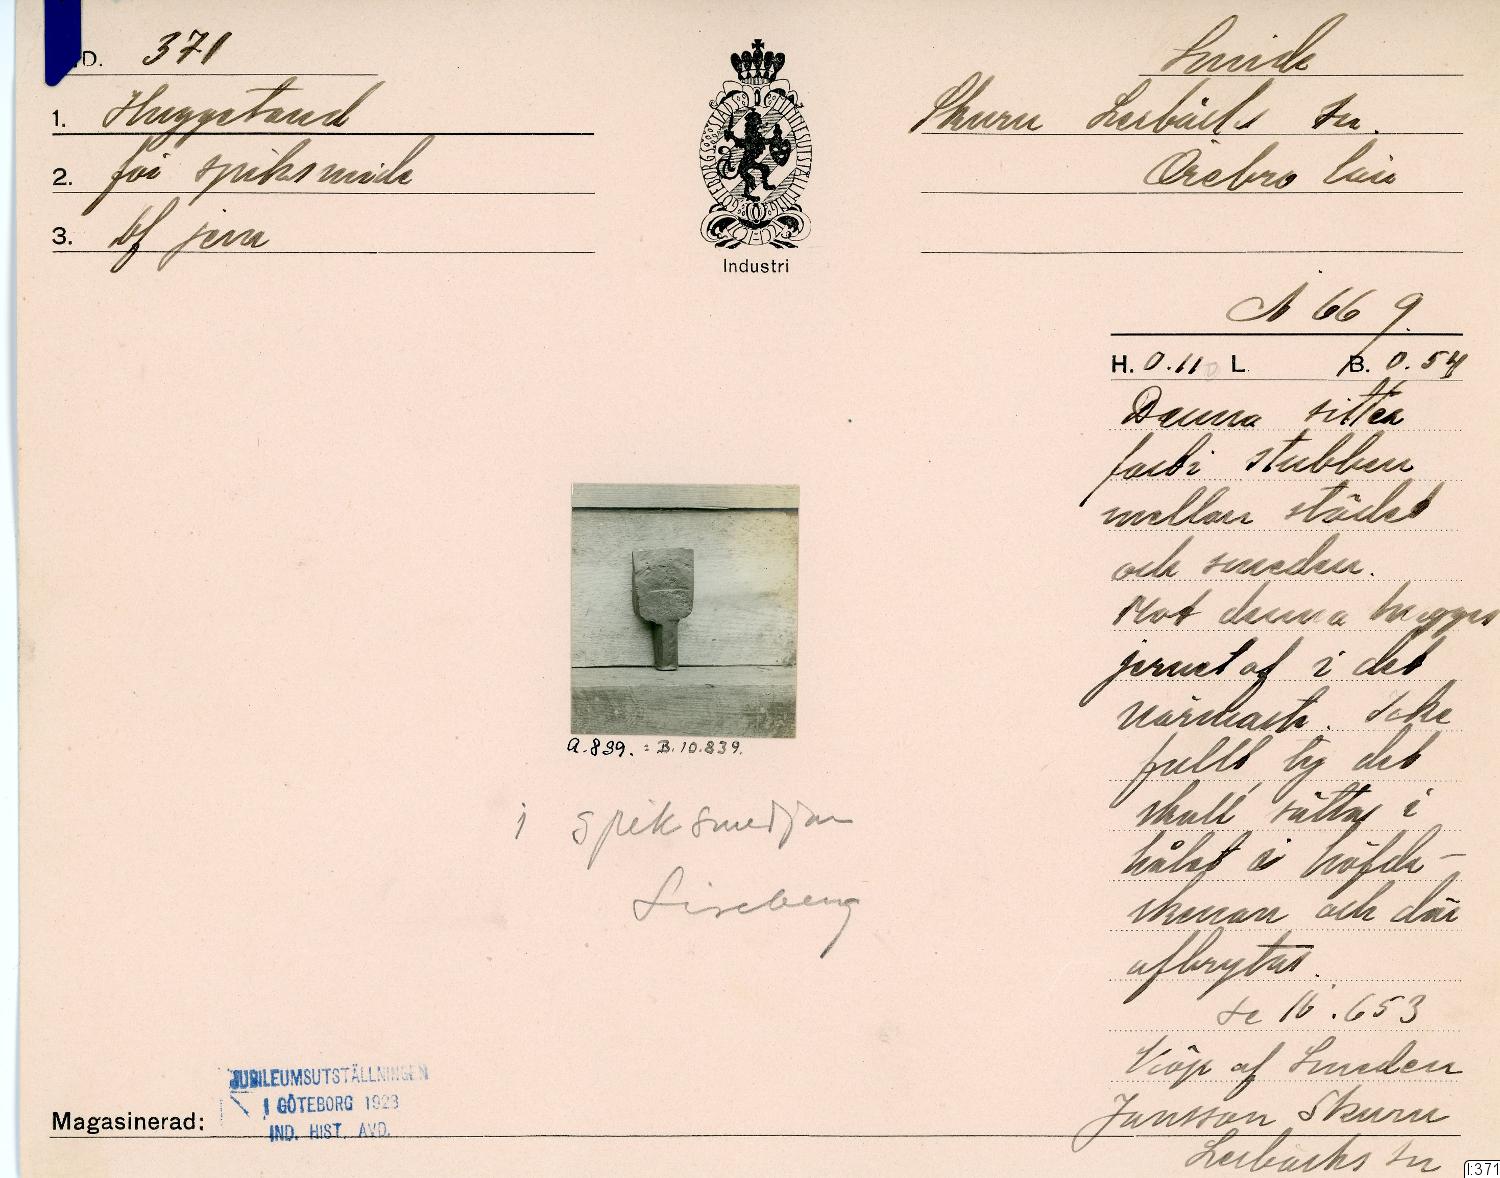 D. 371
1. Huggstand
2. för spiksmide
3. Af jern
GÖTEBORGS STADS JUBILEUMSUTSTÄLLNING
Industri
Smide
Skuru Lerbäcks sn.
Örebro län
N 669
H. 0.110 L. B. 0.54
Denna sitter
fast i stubben
mellan städet
och smeden.
Mot denna hugges
jernet af i det
närmaste. Icke
fullt ty det
skall sättas i
hålet i höfde-
skenan och där
afbrytas.
se 16.653
Köp af Smeden
Jansson Skuru
Lerbäcks sn
A.839. = B.10.839.
i spiksmedjan
Liseberg
JUBILEUMSUTSTÄLLNINGEN
I GÖTEBORG 1923
IND. HIST. AVD.
Magasinerad:
I:371